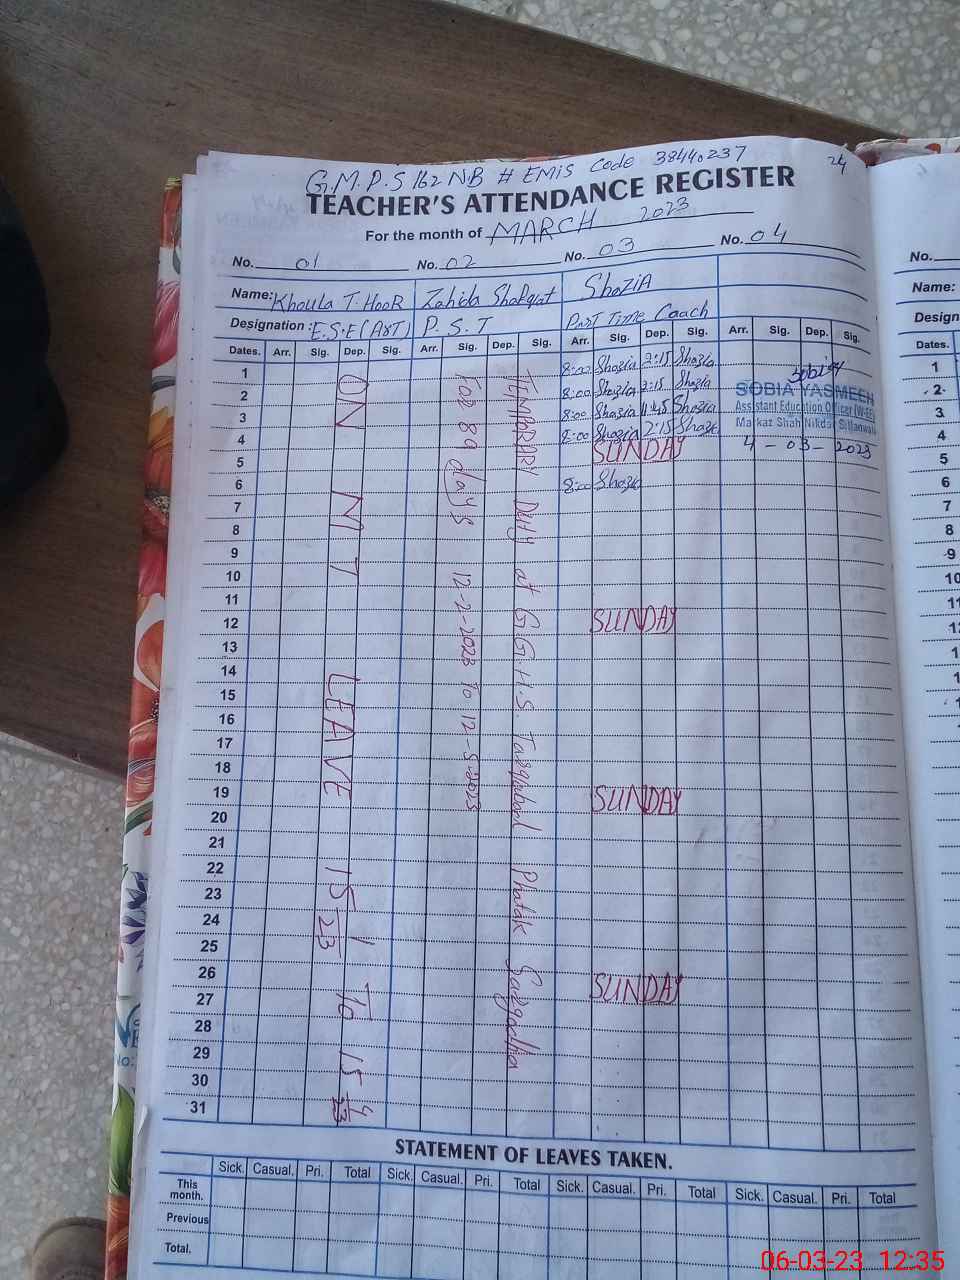 24
G.M.P.S 162 N.B # EMIS Code 38440237
TEACHER'S ATTENDANCE REGISTER
For the month of MARCH 2023
No. 01 No. 02 No. 03 No. 04
Name: Khoula T. HooR Zahida Shafqat ShaziA
Designation: E.S.E (ArT) P.S.T Part Time Coach
Dates. Arr. Sig. Dep. Sig. Arr. Sig. Dep. Sig. Arr. Sig. Dep. Sig. Arr. Sig. Dep. Sig.
1 8:00 Shazia 2:15 Shazia
2 8:00 Shazia 2:15 Shazia
3 8:00 Shazia 11:45 Shazia
4 8:00 Shazia 2:15 Shazia
5 SUNDAY
6 8:00 Shazia
7
8
9
10
11
12 SUNDAY
13
14
15
16
17
18
19 SUNDAY
20
21
22
23
24
25
26 SUNDAY
27
28
29
30
31
ON MT LEAVE 15-1/23 To 15-4/23
TEMPORARY Duty at G.G.H.S. Phatak Sargodha
For 89 days 12-2-2023 To 12-5-2023
SOBIA YASMEEN
Assistant Education Officer (W-EE)
Markaz Shah Nikdar Sillanwali
4-03-2023
STATEMENT OF LEAVES TAKEN.
Sick. Casual. Pri. Total Sick. Casual. Pri. Total Sick. Casual. Pri. Total Sick. Casual. Pri. Total
This month.
Previous
Total.
No.
Name:
Design
Dates.
1
2
3
4
5
6
7
8
9
10
11
12
06-03-23 12:35